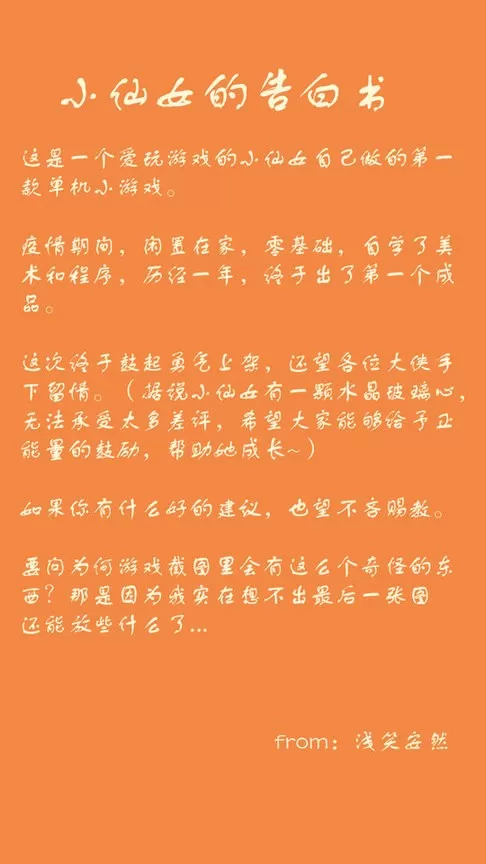 小仙女的告白书
这是一个爱玩游戏的小仙女自己做的第一
款单机小游戏。
疫情期间，闲置在家，零基础，自学了美
术和程序，历经一年，终于出了第一个成
品。
这次终于鼓起勇气上架，还望各位大侠手
下留情。（据说小仙女有一颗水晶玻璃心，
无法承受太多差评，希望大家能够给予正
能量的鼓励，帮助她成长~）
如果你有什么好的建议，也望不吝赐教。
要问为何游戏截图里会有这么个奇怪的东
西？那是因为我实在想不出最后一张图
还能放些什么了...
from：浅笑安然